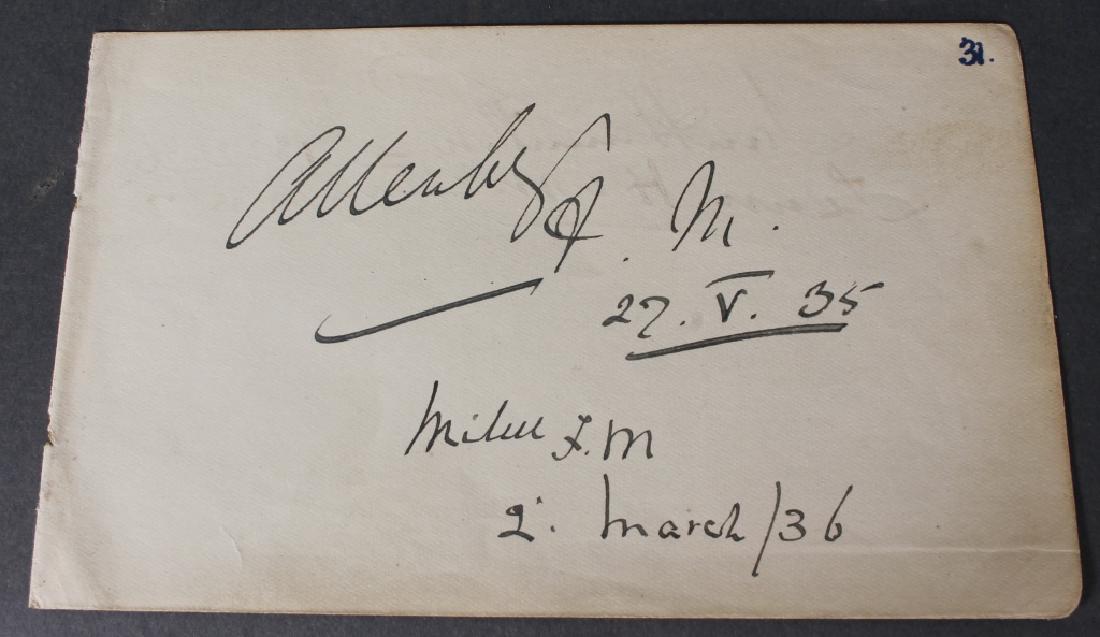 31.
Allenby F. M.
27. V. 35
Milne F.M
2. March/36